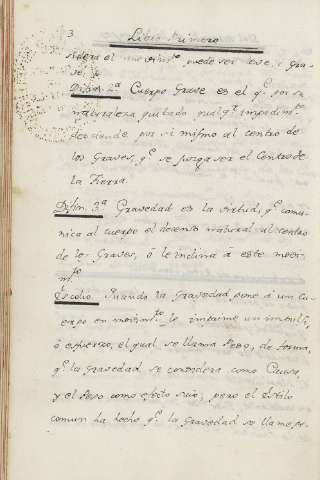 3 Libro Primero
el movim.to puede ser ese: Gra-
ve.
Difin. 2.a Cuerpo Grave es el q.e por su
naturaleza quitado qualq.r impedim.to
desciende por si mismo al centro de
los Graves, q.e se juzga ser el Centro de
la Tierra.
Difin. 3.a Gravedad es la virtud, q.e comu-
nica al cuerpo el decenso natural al centro
de los Graves, ó le inclina á este movi-
m.to
Escolio. Quando la gravedad pone á un cu-
erpo en movim.to le imprime un
ó esfuerzo, el qual se llama Peso, de forma,
q.e la gravedad se considera como Causa,
y el Peso como efecto suio; pero el Estilo
comun ha hecho q.e la gravedad se llame pe-